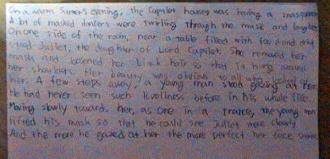 On a warm Summers evening, the Capulet house was having a masquerade
A lot of masked dancers were twirling through the music and laughter
On one side of the room, near a table filled with food and drink
stood Juliet, the daughter of Lord Capulet. She removed her
mask and loosened her black hair so that it hung around
her shoulders. Her beauty was obvious to all who
her. A few steps away, a young man stood gazing at her.
He had never seen such loveliness before in his whole life.
Moving slowly towards her, as one in a trance, the young man
lifted his mask so that he could see Juliet more clearly
And the more he gazed at her the more perfect her face